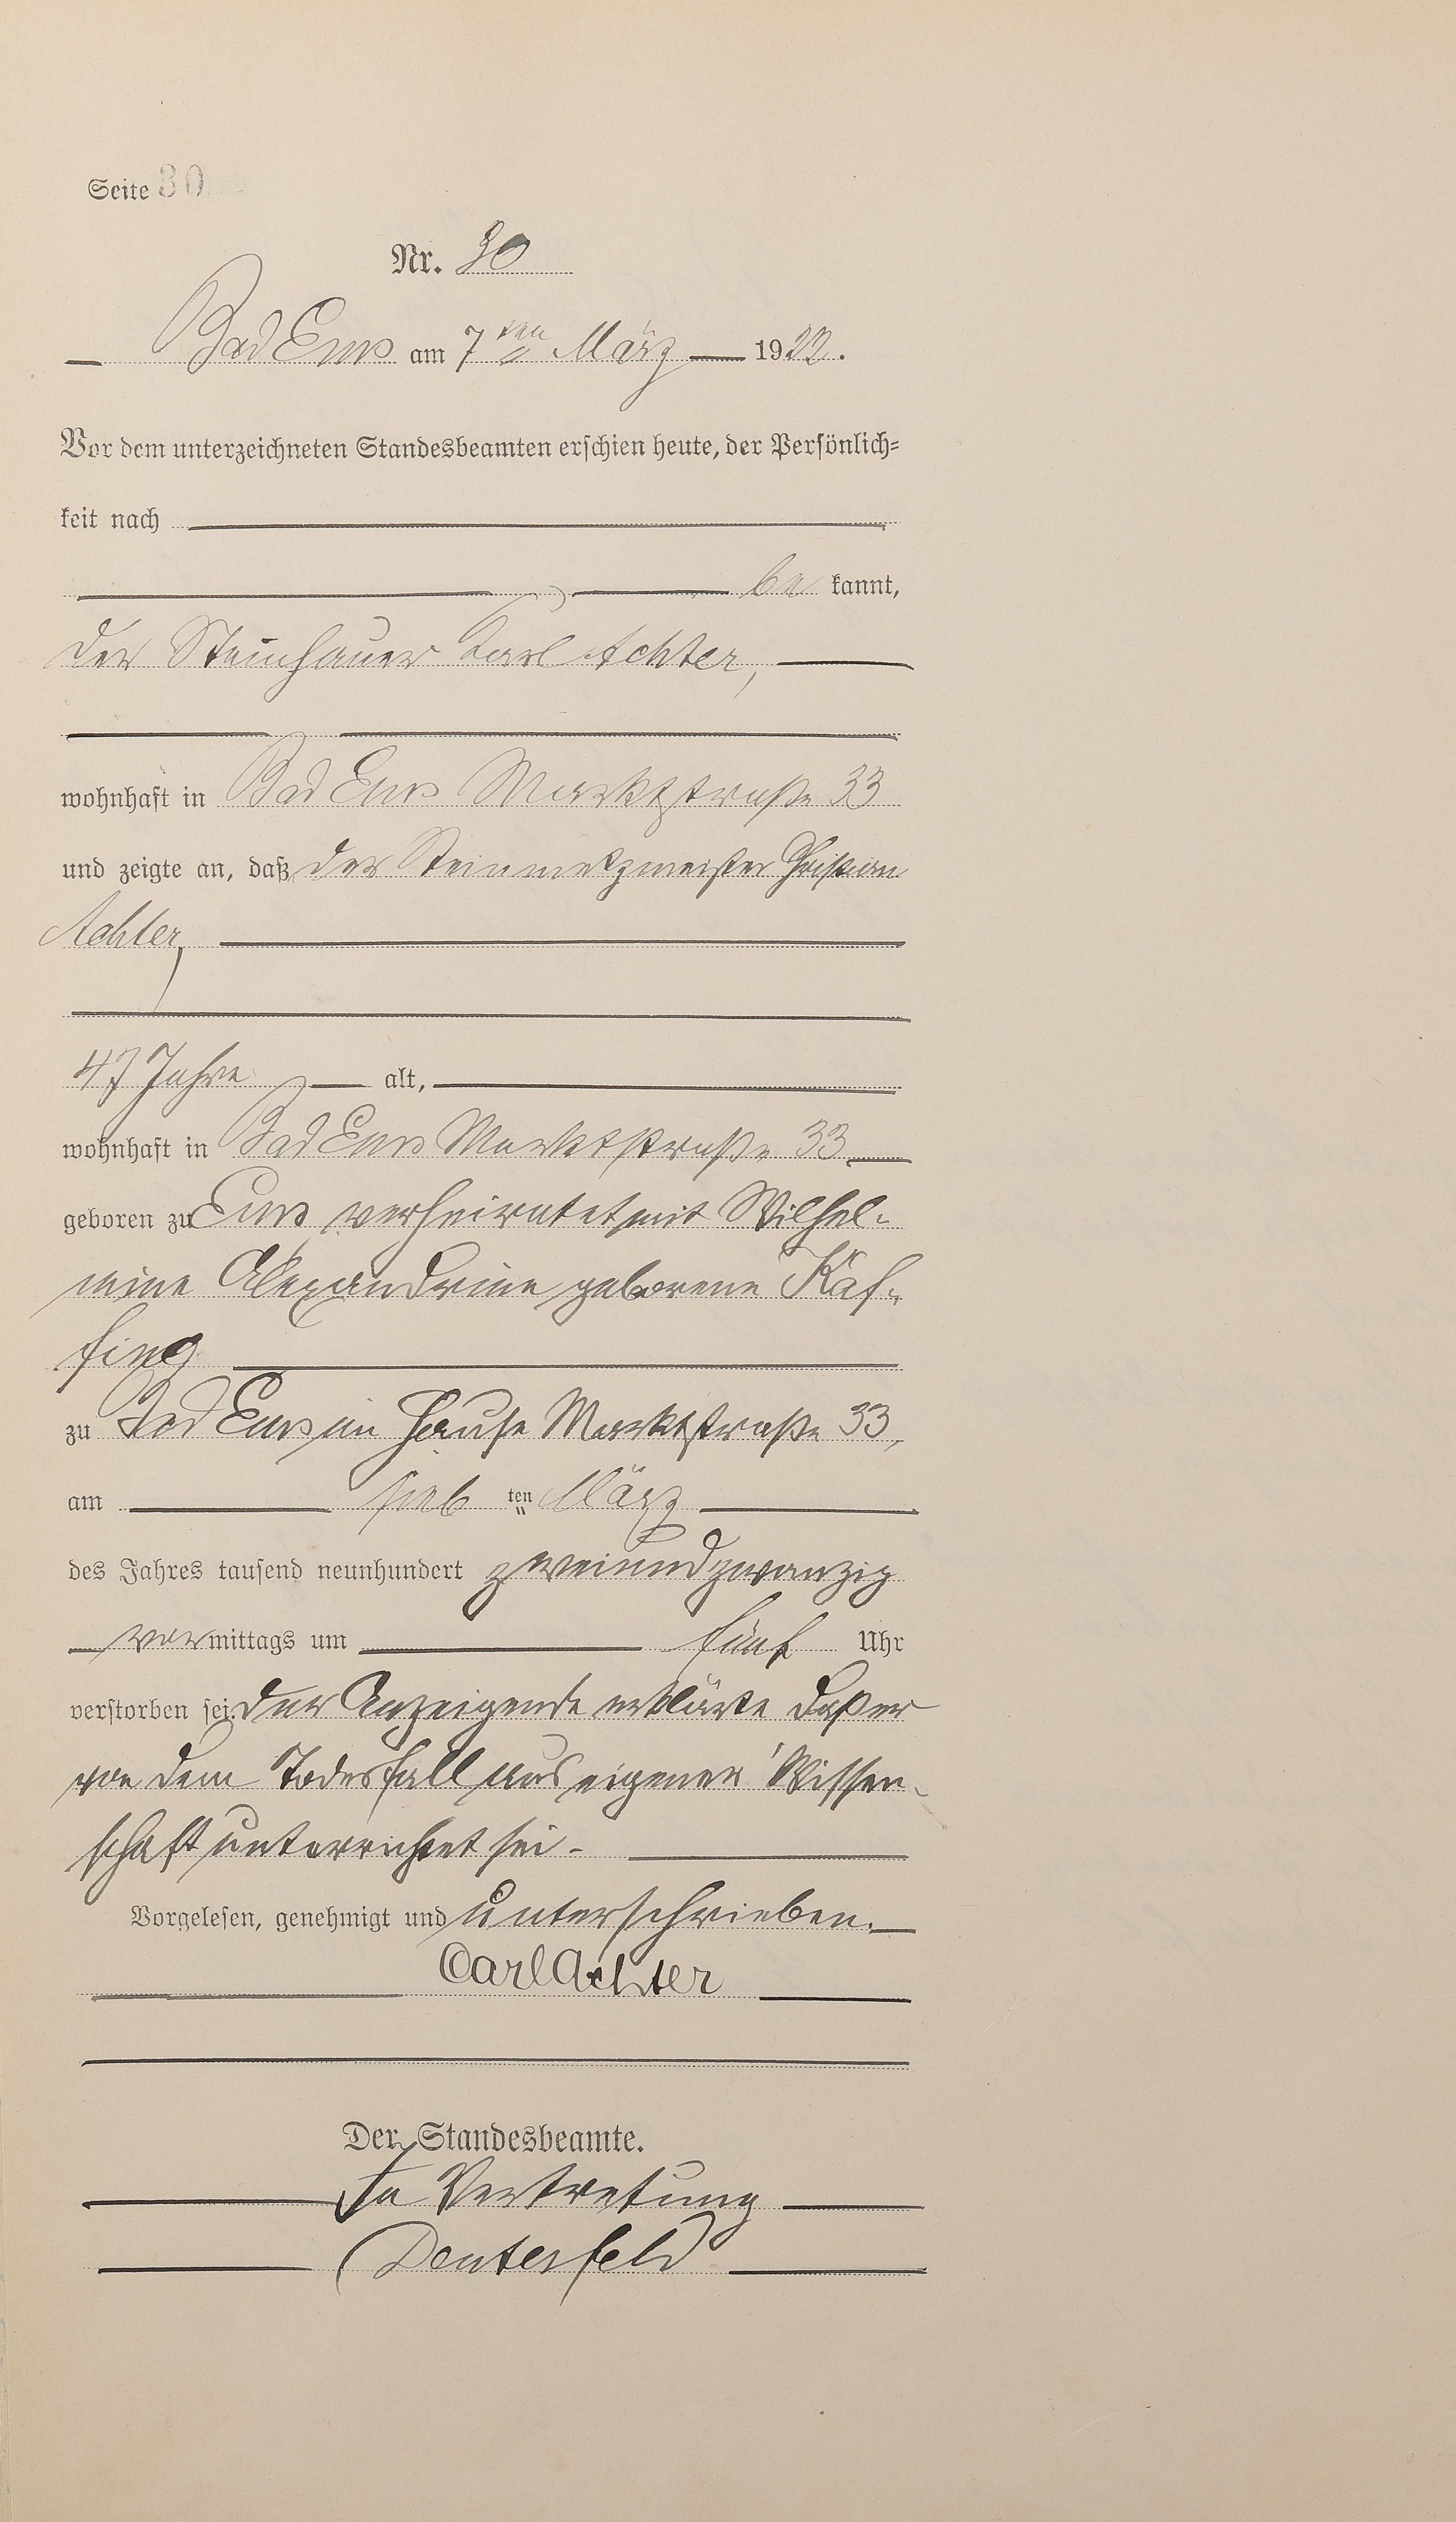 Seite 30
Nr. 30
Bad Ems am 7ten März 1922.
Vor dem unterzeichneten Standesbeamten erschien heute, der Persönlich-
keit nach
be kannt,
der Steinhauer Karl Achter,
wohnhaft in Bad Ems Marktstraße 33
und zeigte an, daß der Steinmetzmeister Christian
Achter,
47 Jahre alt,
wohnhaft in Bad Ems Marktstraße 33
geboren zu Ems verheiratet mit Wilhel-
mine Alexandrine geborene Käf-
fing
zu Bad Ems im Hause Marktstraße 33,
am sieb ten März
des Jahres tausend neunhundert zweiundzwanzig
vormittags um fünf Uhr
verstorben sei. Der Anzeigende erklärte daß er
von dem Todesfall aus eigener Wissen-
schaft unterrichtet sei.
Vorgelesen, genehmigt und unterschrieben.
Carl Achter
Der Standesbeamte.
In Vertretung